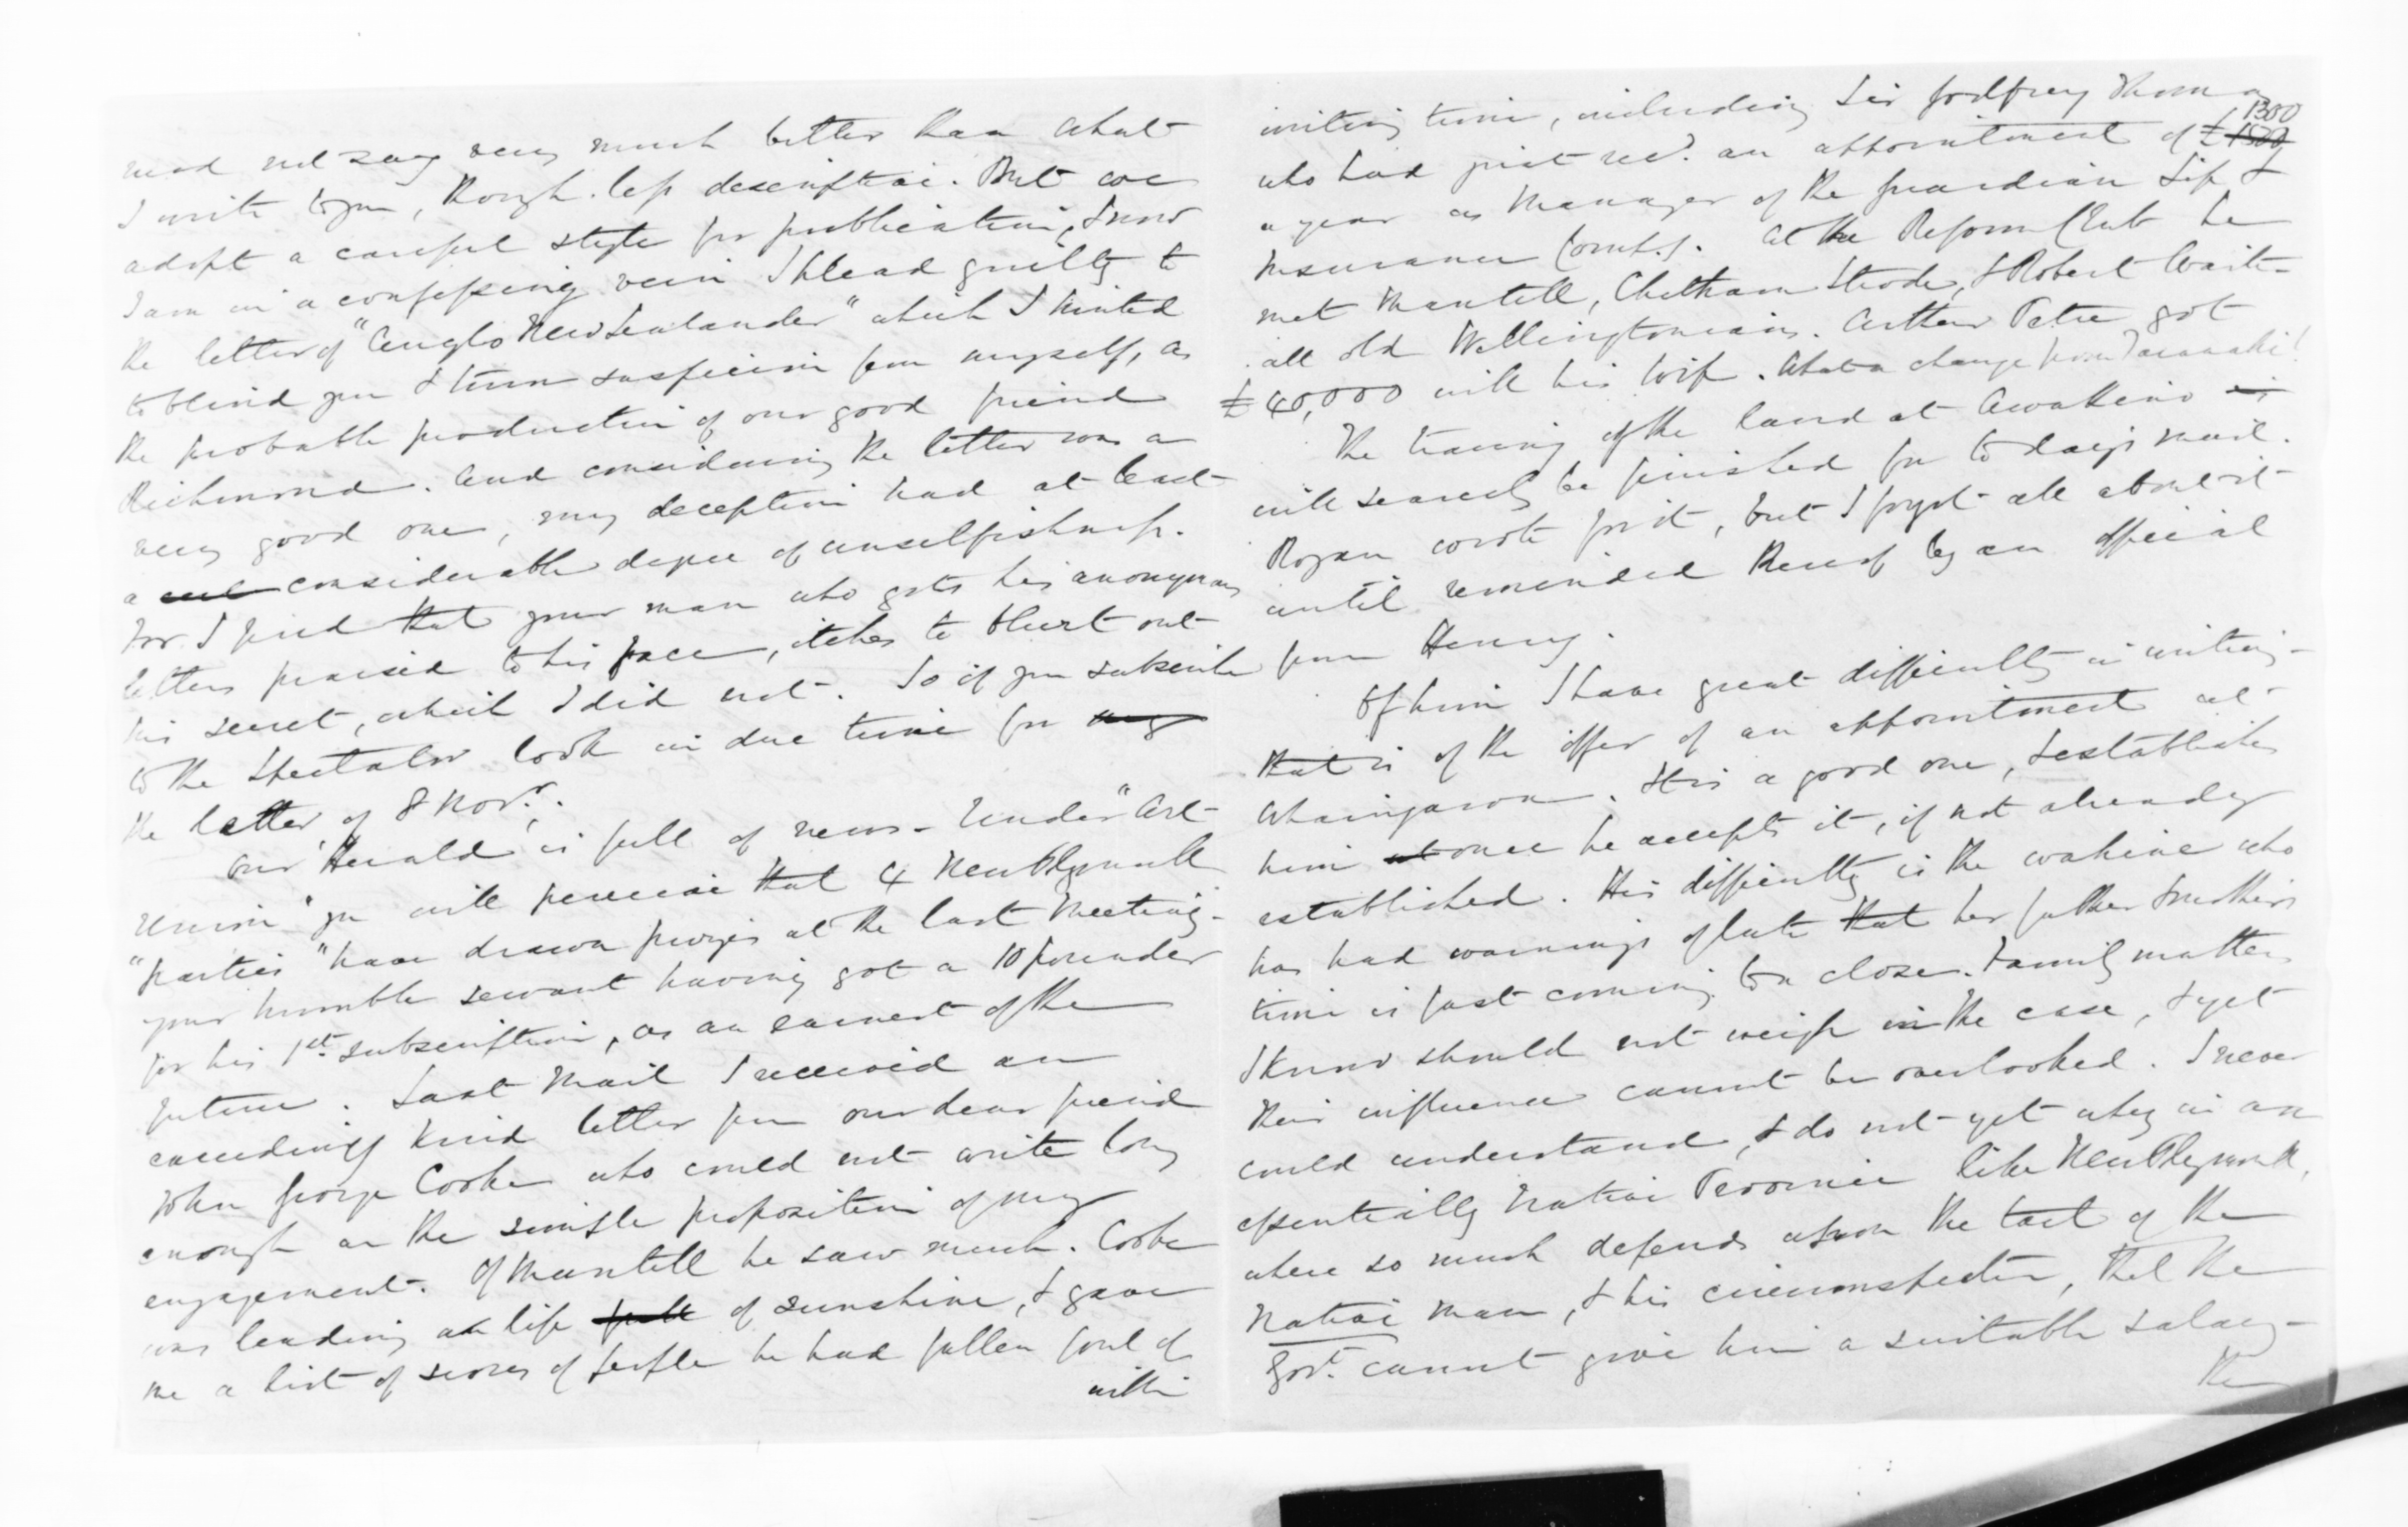 need not say very much better than what
I write to you, though less descriptive. But we
adopt a careful style for publication, & now
I am in a confessing vein I plead guilty to
the letter of "Anglo New Zealander" which I hinted
to blind you & turn suspicion from myself, as
the probable production of our good friend
Richmond. And considering the letter was a
very good one, my deception had at least
a considerable degree of unselfishness.
For I find that your man who gets his anonymous
letters praised to his face, itches to blurt out
his secret, which I did not. So if you subscribe
to the Spectator look in due time for my
the letter of 8 Novr.
Our Herald is full of news - Under "Art
Union" you will perceive that 4 New Plymouth
"parties" have drawn prizes at the last meeting -
your humble servant having got a 10 pounder
for his 1st subscription, as an earnest of the
future. Last Mail I received an
exceedingly kind letter from our dear friend
John George Cooke who could not write long
enough on the simple proposition of my
engagement. Of Mantell he saw much. Cooke
was leading a life full of sunshine, & gave
me a list of scores of people he had fallen foul of
within
writing time, including Sir Godfrey Thomas
1300
who had just recd. an appointment of £1500
a year as Manager of the Guardian Life &
Insurance Comp.y. At the Reform Club he
met Mantell, Chetham Strode, & Robert Waitt -
all old Wellingtonians. Arthur Petre got
£40,000 with his wife. What a change from Taranaki!
The tracing of the land at Awakino is
will scarcely be finished for to days mail.
Rogan wrote for it, but I forgot all about it
until reminded thereof by an official
from Henry.
Of him I have great difficulty in writing -
that is of the offer of an appointment at
Whaingaroa. It is a good one, & establishes
him at once he accepts it, if not already
established. His difficulty is the wahine who
has had warnings of late that her father & mothers
time is fast coming to a close. Family matters
I know should not weigh in the case, & yet
their influence cannot be overlooked. I never
could understand, & do not yet why in an
essentially Native Province like New Plymouth,
where so much depends upon the tact of the
Native man, & his circumspection, that the
Govt. cannot give him a suitable salary -
the